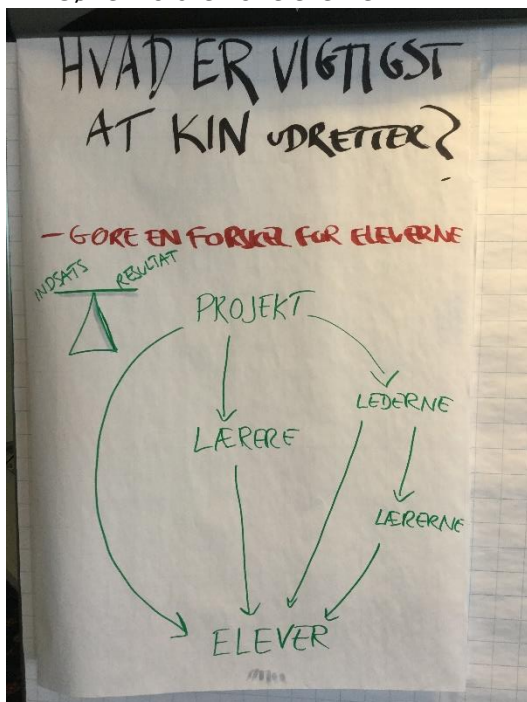 HVAD ER VIGTIGST
AT KIN UDRETTER?
- GØRE EN FORSKEL FOR ELEVERNE
INDSATS RESULTAT
PROJEKT
LEDERNE
LÆRERE
LÆRERNE
ELEVER